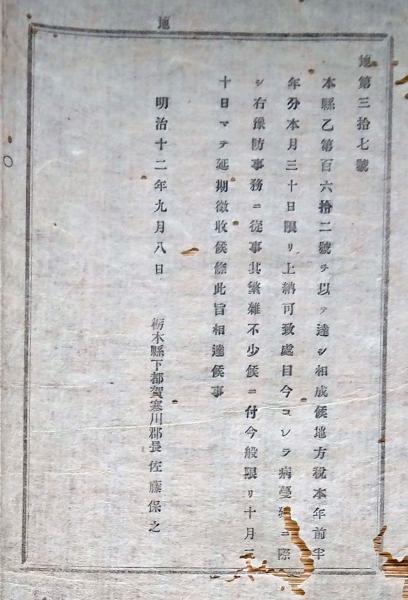 地
地第三拾七號
本縣乙第百六拾二號ヲ以テ達シ相成候地方税本年前半
年分本月三十日限リ上納可致處目今コレラ病蔓延ニ際
シ右豫防事務ニ從事其繁雜不少候ニ付今般限リ十月二
十日マテ延期徴收候條此旨相達候事
明治十二年九月八日
栃木縣下都賀寒川郡長佐藤保之